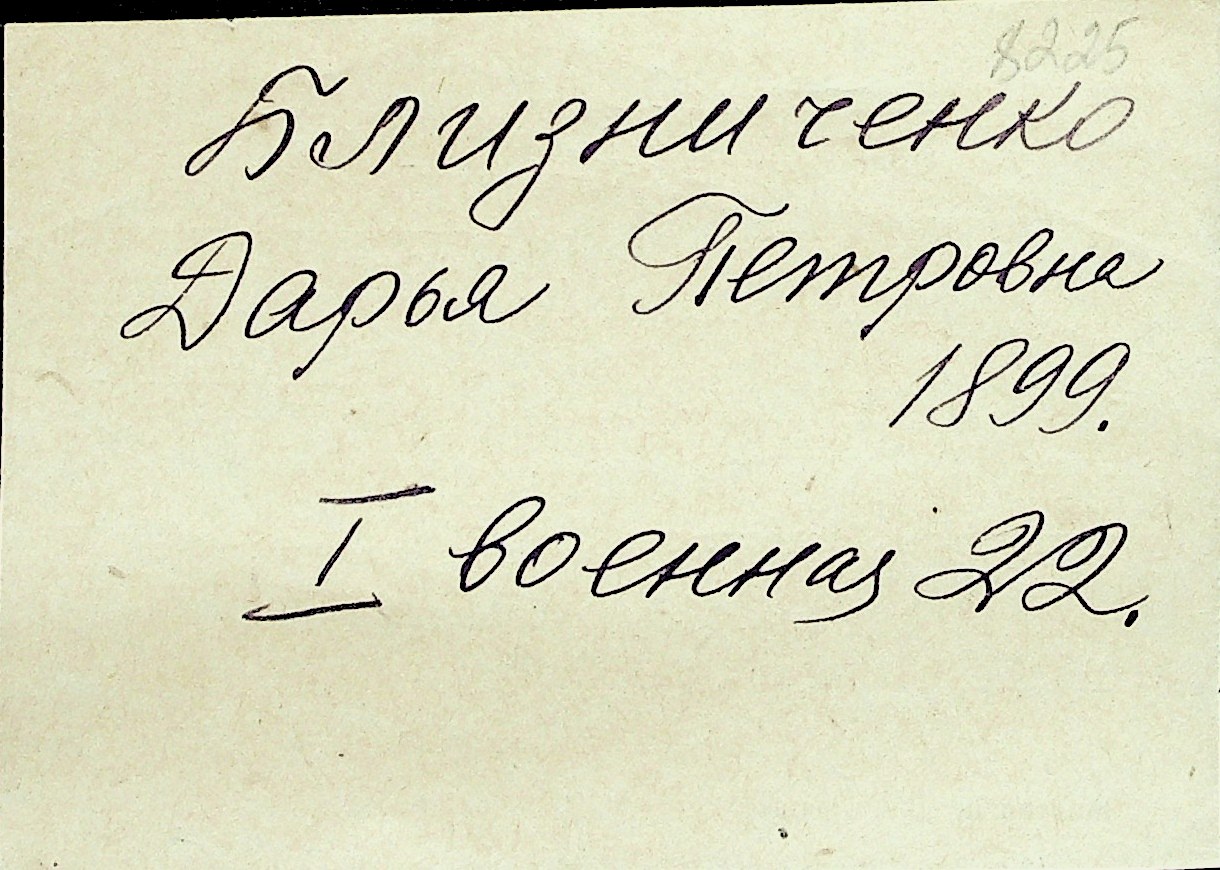 8225
Близниченко
Дарья Петровна
1899.
I военная 22.